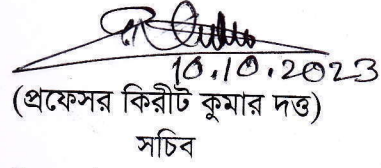 10.10.2023
(প্রফেসর কিরীট কুমার দত্ত)
সচিব